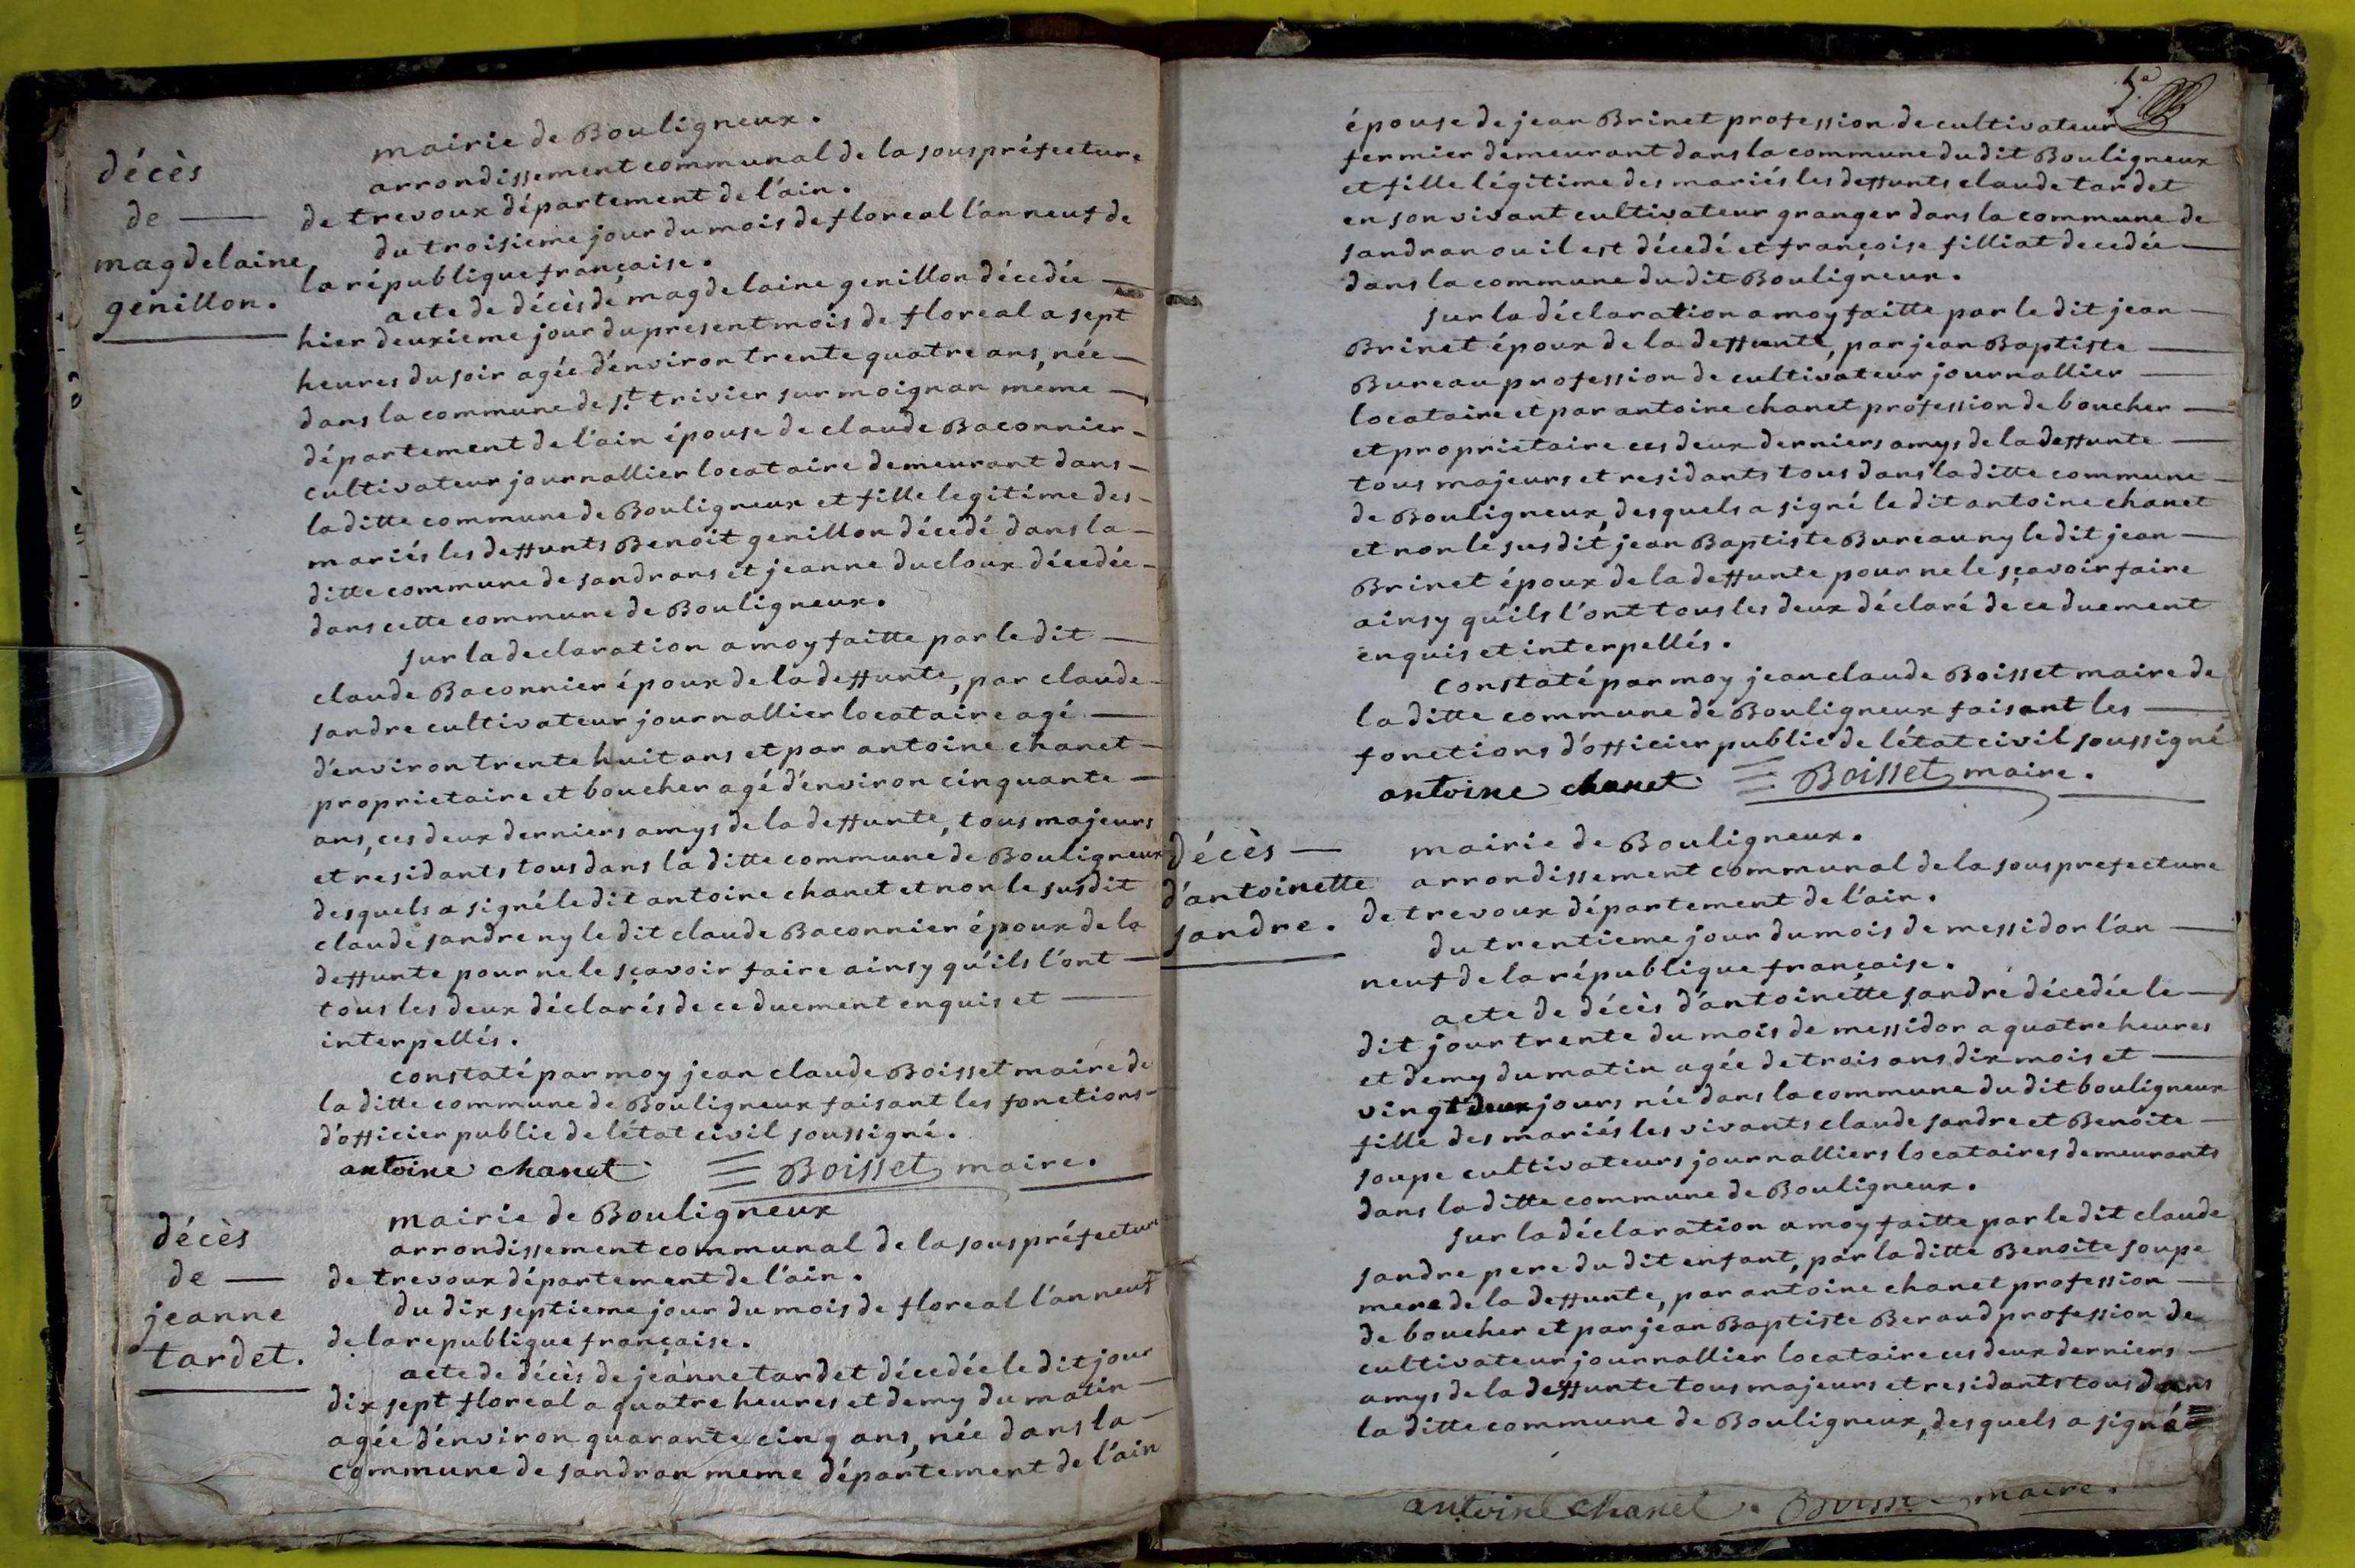 décès
de
magdelaine
genillon.
mairie de Bouligneux.
arrondissement communal de la souspréfecture
de trevoux département de l'ain.
du troisieme jour du mois de floreal l'an neuf de
la république française.
acte de décès de magdelaine genillon décedée
hier deuxieme jour du present mois de floreal a sept
heures du soir agée d'environ trente quatre ans, née
dans la commune de st trivier sur moignan meme
département de l'ain épouse de claude Baconnier
cultivateur journallier locataire demeurant dans
la ditte commune de Bouligneux et fille legitime des
mariés les deffunts Benoit genillon décedé dans la
ditte commune de sandrans et jeanne ducloux décedée
dans cette commune de Bouligneux.
sur la declaration a moy faitte par le dit
claude Baconnier époux de la deffunte, par claude
sandre cultivateur journallier locataire agé
d'environ trente huit ans et par antoine chanet
proprietaire et boucher agé d'environ cinquante
ans, ces deux derniers amys de la deffunte, tous majeurs
et residants tous dans la ditte commune de Bouligneux
desquels a signé le dit antoine chanet et non le susdit
claude sandre ny le dit claude Baconnier époux de la
deffunte pour ne le sçavoir faire ainsy qu'ils l'ont
tous les deux déclarés de ce duement enquis et
interpellés.
constaté par moy jean claude Boisset maire de
la ditte commune de Bouligneux faisant les fonctions
d'officier public de l'état civil soussigné.
antoine chanet Boisset maire.
décès
de
jeanne
tardet.
mairie de Bouligneux
arrondissement communal de la souspréfecture
de trevoux département de l'ain.
du dix septieme jour du mois de floreal l'an neuf
de la republique française.
acte de décès de jeanne tardet décedée le dit jour
dix sept floreal a quatre heures et demy du matin
agée d'environ quarante cinq ans, née dans la
commune de sandran meme département de l'ain
épouse de jean Brinet profession de cultivateur
fermier demeurant dans la commune du dit Bouligneux
et fille légitime des mariés les deffunts claude tardet
en son vivant cultivateur granger dans la commune de
sandran ou il est décedé et françoise filliat decedée
dans la commune du dit Bouligneux.
sur la déclaration a moy faitte par le dit jean
Brinet époux de la deffunte, par jean Baptiste
Bureau profession de cultivateur journallier
locataire et par antoine chanet profession de boucher
et proprietaire ces deux derniers amys de la deffunte
tous majeurs et residants tous dans la ditte commune
de Bouligneux, desquels a signé le dit antoine chanet
et non le susdit jean Baptiste Bureau ny le dit jean
Brinet époux de la deffunte pour ne le sçavoir faire
ainsy qu'ils l'ont tous les deux déclaré de ce duement
enquis et interpellés.
constaté par moy jean claude Boisset maire de
la ditte commune de Bouligneux faisant les
fonctions d'officier public de l'état civil soussigné
antoine chanet Boisset maire.
décès
d'antoinette
sandre.
mairie de Bouligneux.
arrondissement communal de la souspréfecture
de trevoux département de l'ain.
du trentieme jour du mois de messidor l'an
neuf de la république française.
acte de décès d'antoinette sandre décedée le
dit jour trente du mois de messidor a quatre heures
et demy du matin agée de trois ans dix mois et
vingt deux jours née dans la commune du dit bouligneux
fille des mariés les vivants claude sandre et Benoite
soupe cultivateurs journalliers locataires demeurants
dans la ditte commune de Bouligneux.
sur la déclaration a moy faitte par le dit claude
sandre pere du dit enfant, par la ditte Benoite soupe
mere de la deffunte, par antoine chanet profession
de boucher et par jean Baptiste Beraud profession de
cultivateur journallier locataire ces deux derniers
amys de la deffunte tous majeurs et residants tous dans
la ditte commune de Bouligneux, desquels a signé
antoine chanet Boisset maire.